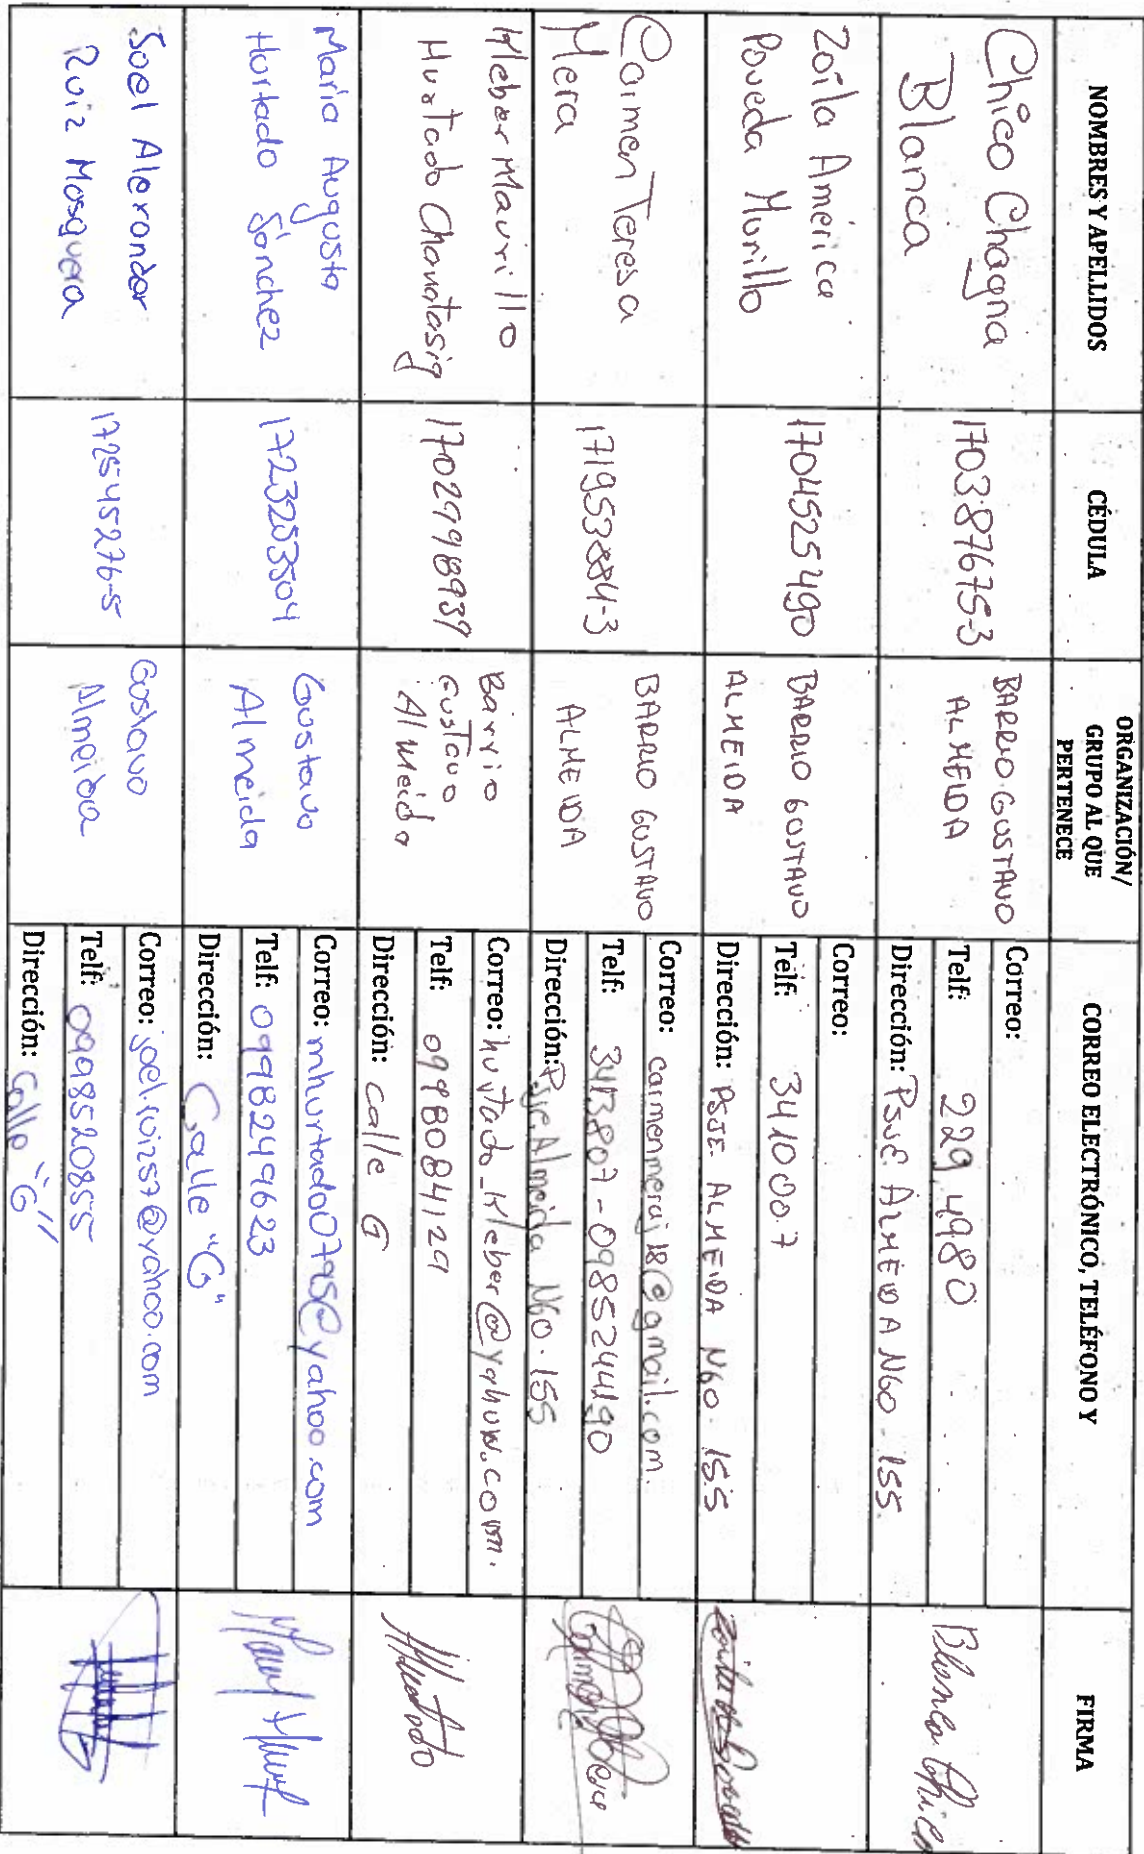 NOMBRES Y APELLIDOS
CÉDULA
ORGANIZACIÓN/
GRUPO AL QUE
PERTENECE
CORREO ELECTRÓNICO, TELÉFONO Y
FIRMA
Chico Chagna
Blanca
170387675-3
BARRIO GUSTAVO
ALMEIDA
Correo:
Telf: 2294980
Dirección: PSJE ALMEIDA N60-155
Blanca Chico
Zoila América
Poveda Murillo
1704525490
BARRIO GUSTAVO
ALMEIDA
Correo:
Telf: 3410007
Dirección: PSJE ALMEIDA N60-155
Carmen Teresa
Mera
171953884-3
BARRIO GUSTAVO
ALMEIDA
Correo: carmenmeraj18@gmail.com.
Telf: 3413807-0985244190
Dirección: Psje. Almeida N60-155
Kleber Maurillo
Hurtado Chanatasig
Barrio
Gustavo
Almeida
Correo: hurtado_kleber@yahoo.com.
Telf: 0998084129
Dirección: calle G
Hurtado
María Augusta
Hurtado Sánchez
1723253504
Gustavo
Almeida
Correo: mhurtado0795@yahoo.com
Telf: 0998249623
Dirección: Calle "G"
Joel Alexander
Ruiz Mosquera
172545276-5
Gustavo
Almeida
Correo: joel.ruiz57@yahoo.com
Telf: 0998520855
Dirección: Calle "G"